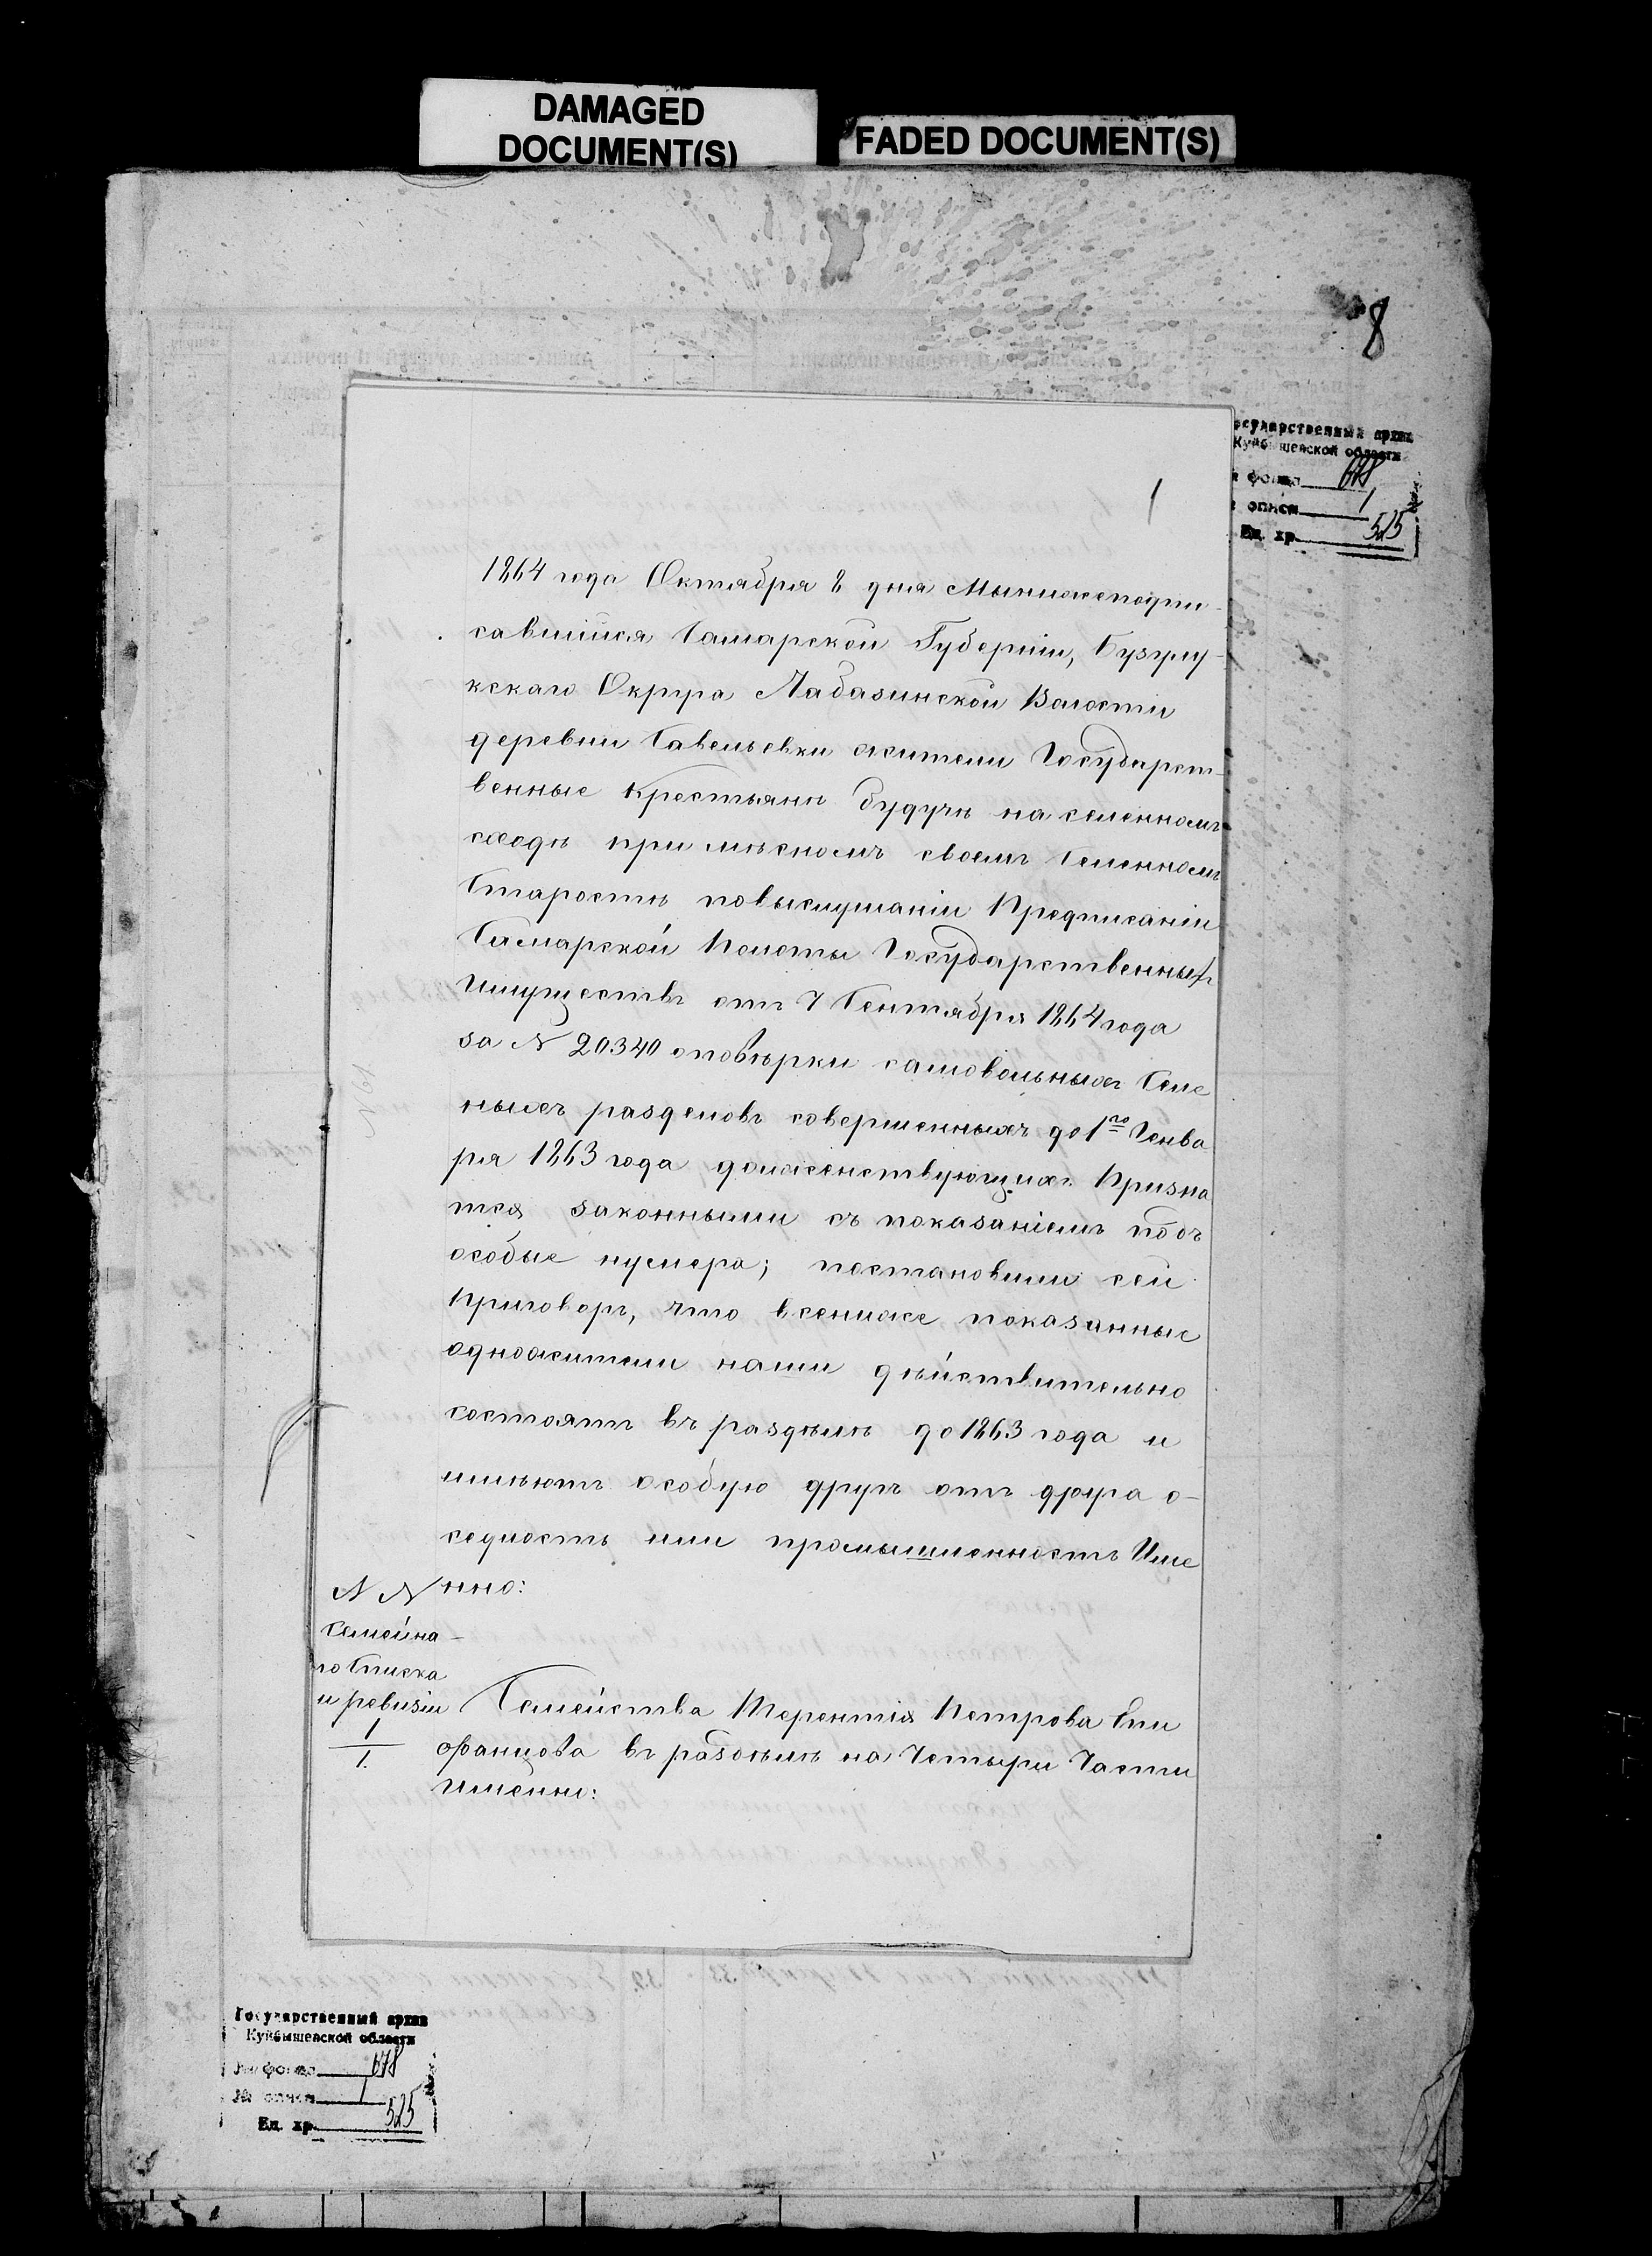 DAMAGED
DOCUMENT(S)
FADED DOCUMENT(S)
8
Государственный архив
Куйбышевской области
№ фонда 678
№ описи 1
Ед. хр. 525
1
1864 года Октября 8 дня Мынижеподпи-
савшийся Самарской Губерніи, Бузулу-
кскаго Округа Лабазинской Волости
деревни Савельевки жители Государст-
венные крестьяне будучи на селенномъ
сходѣ при мѣсномъ своемъ Селенномъ
Старостѣ повыслушаніи Предписаніи
Самарской Полоты Государственныхъ
Имуществъ отъ 7 Сентября 1864 года
за N 20340 оповѣрки самовольныхъ Семе
ныхъ разделовъ совершенныхъ до 1го Генва
ря 1863 года долженствующихъ Призна
тся законными съ показаніемъ подъ
особые нумера; постановили сей
Приговоръ, что всениже показанные
одножители наши дѣйствительно
состоятъ въ раздѣлѣ до 1863 года и
имѣютъ особую другъ отъ друга о-
седность или промышленность Име
нно:
N N
Семейна-
го Списка
и ревизіи
1
1.
Семейства Терентія Петрова Епи
фанцова въ раздѣлѣ на Четыри Части
имѣнни:
Государственный архив
Куйбышевской области
№ фонда 678
№ описи 1
Ед. хр. 525